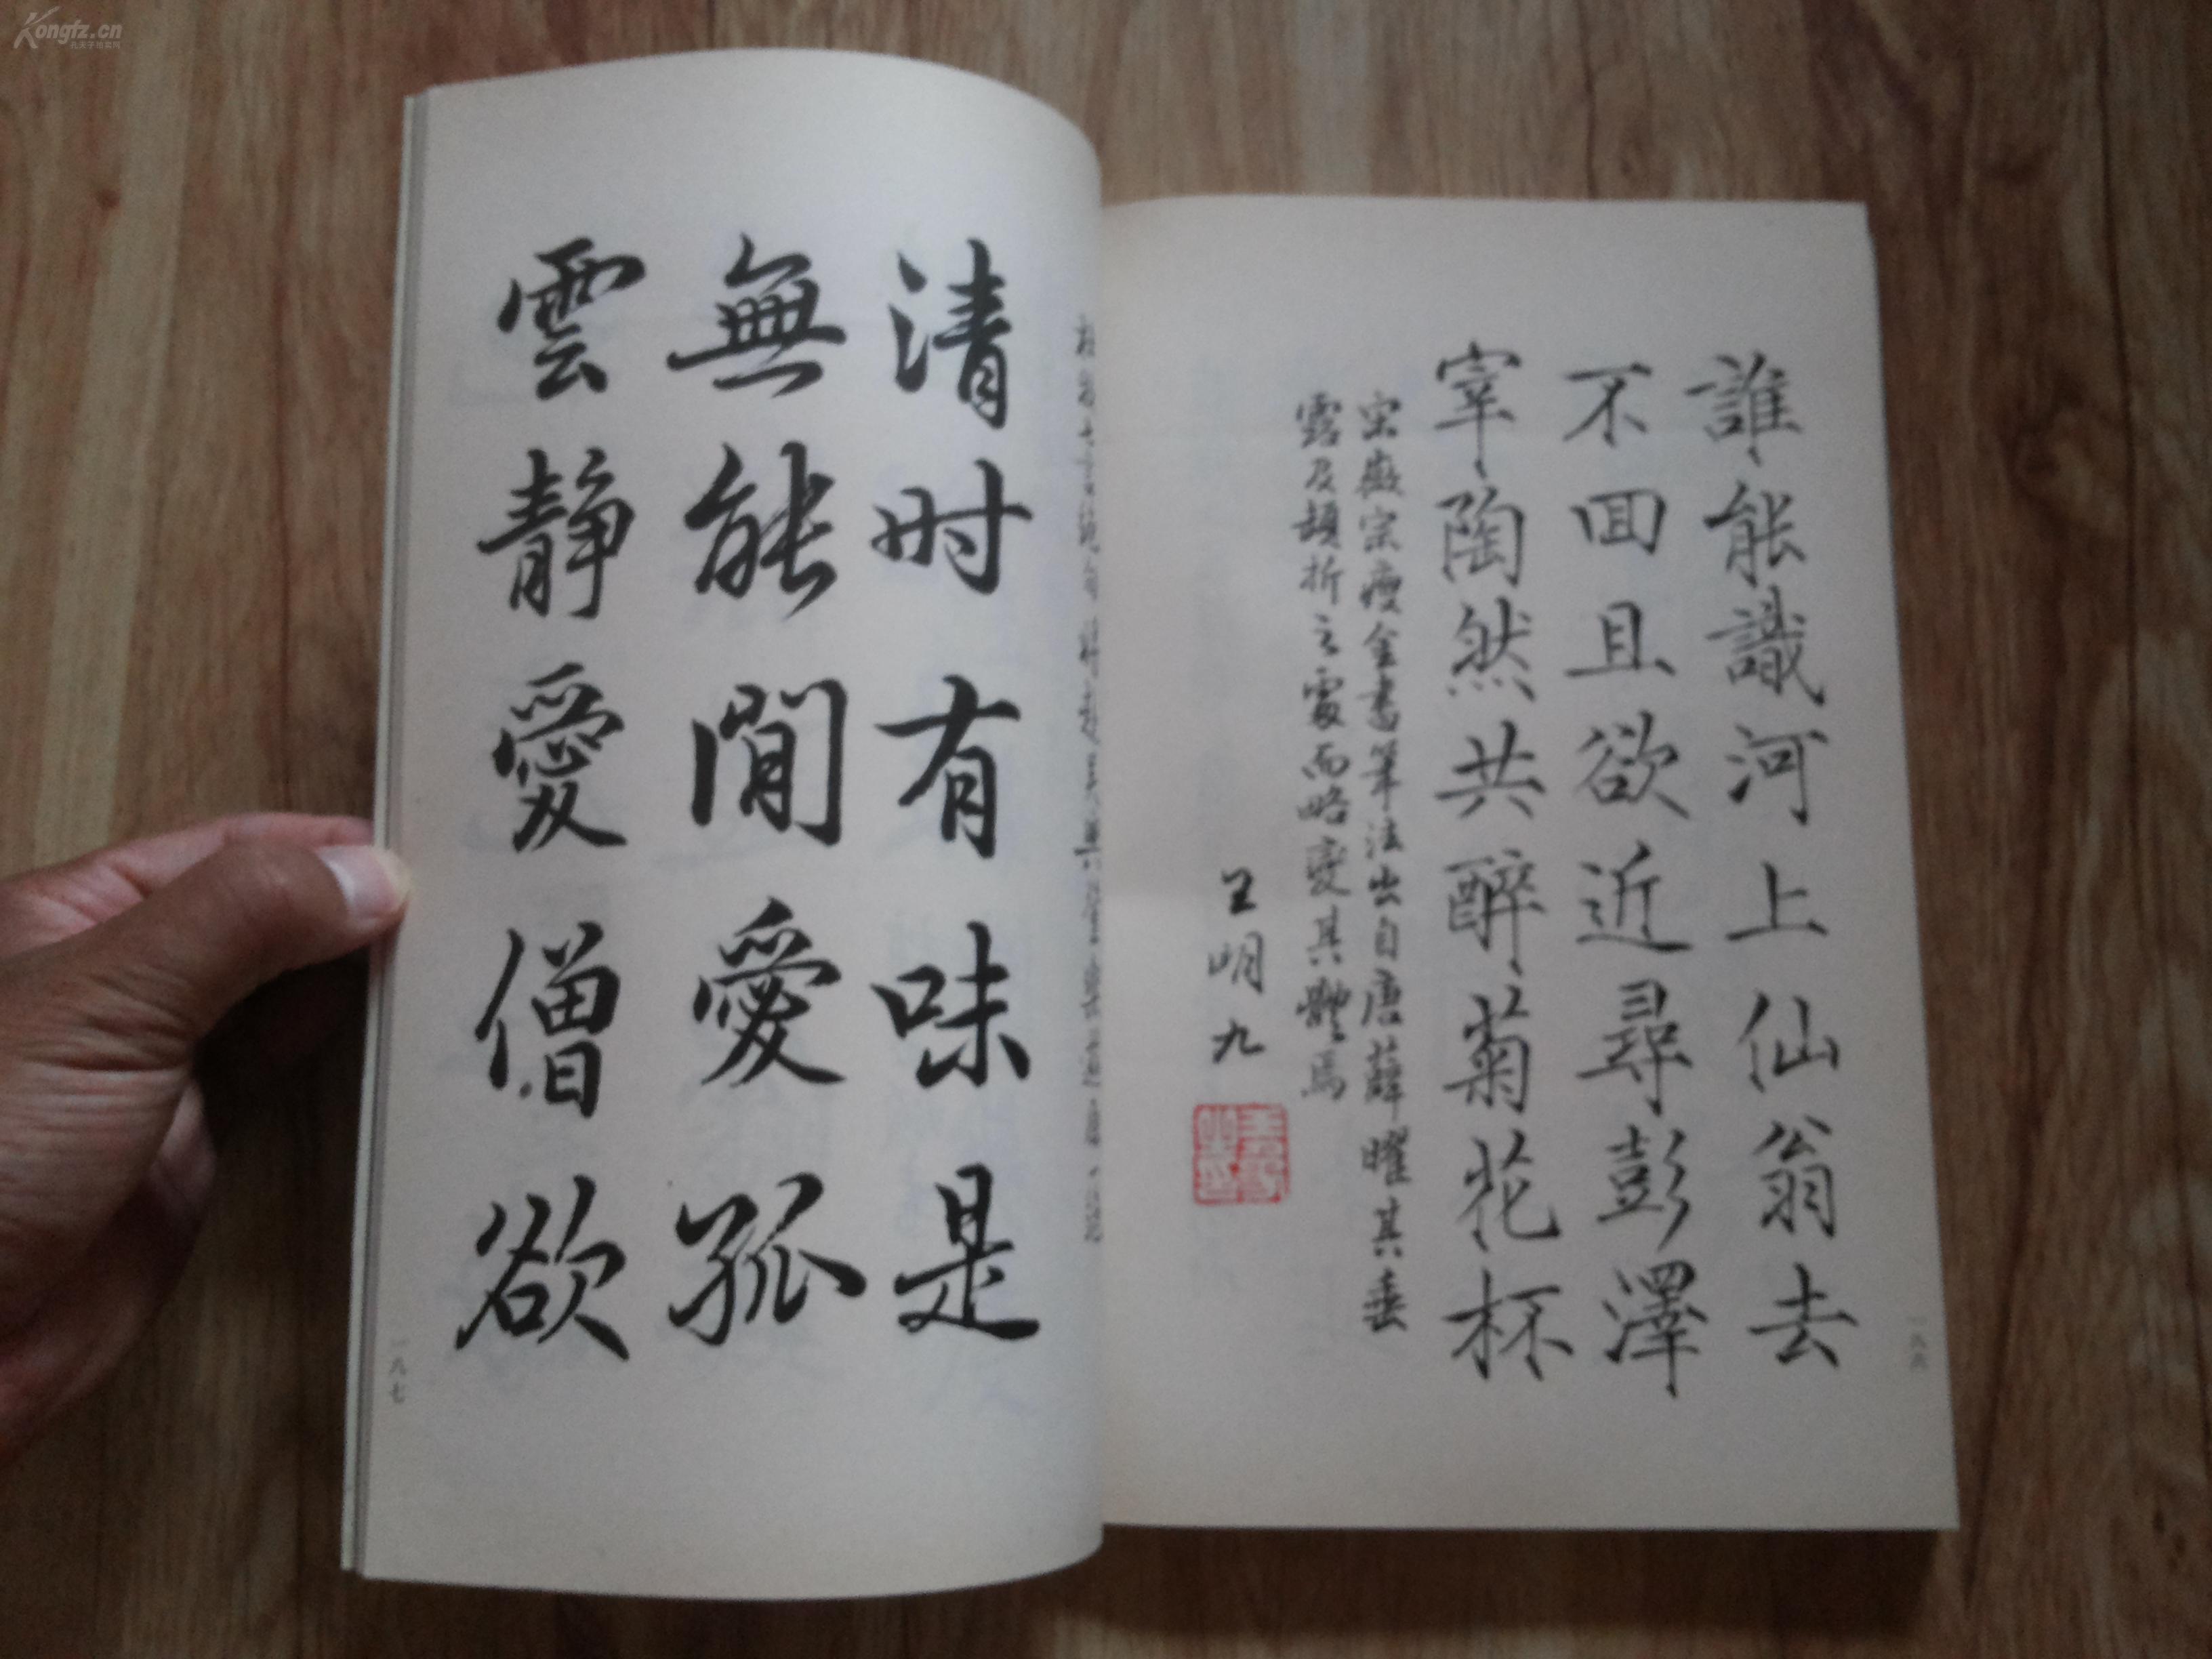 誰能識河上仙翁去
不回且欲近尋彭澤
宰陶然共醉菊花杯
宋徽宗瘦金書筆法出自唐薛曜其垂
露及頓折之處而略變其體焉
王明九
一八六
清时有味是
無能閒愛孤
雲靜愛僧欲
一八七
Kongfz.cn
孔夫子旧书网